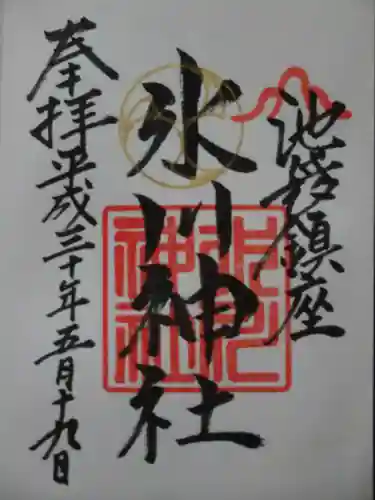 池袋鎮座
氷川神社
奉拝平成三十年五月十九日
氷川
神社